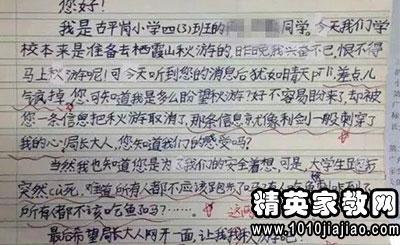 您好！
我是古平岗小学四(3)班的 同学，今天我们学
校本来是准备去栖霞山秋游的，昨晚我兴奋不已，恨不得
马上秋游呢！可今天听到您的消息后犹如晴天pili，差点儿
气疯掉，您可知道我是多么盼望秋游？好不容易盼来了，却被
您一条信息把秋游取消了，那条信息就像利剑一般刺穿了
我的心，局长大人，您知道我们的感受吗？
当然我也知道您是为了我们的安全着想，可是，大学生跑步
突然cu死，难道所有人都不应该跑步
所有人都不该吃鱼了吗？……。
最后希望局长大人网开一面，让我
精英家教网
www.1010jiajiao.com